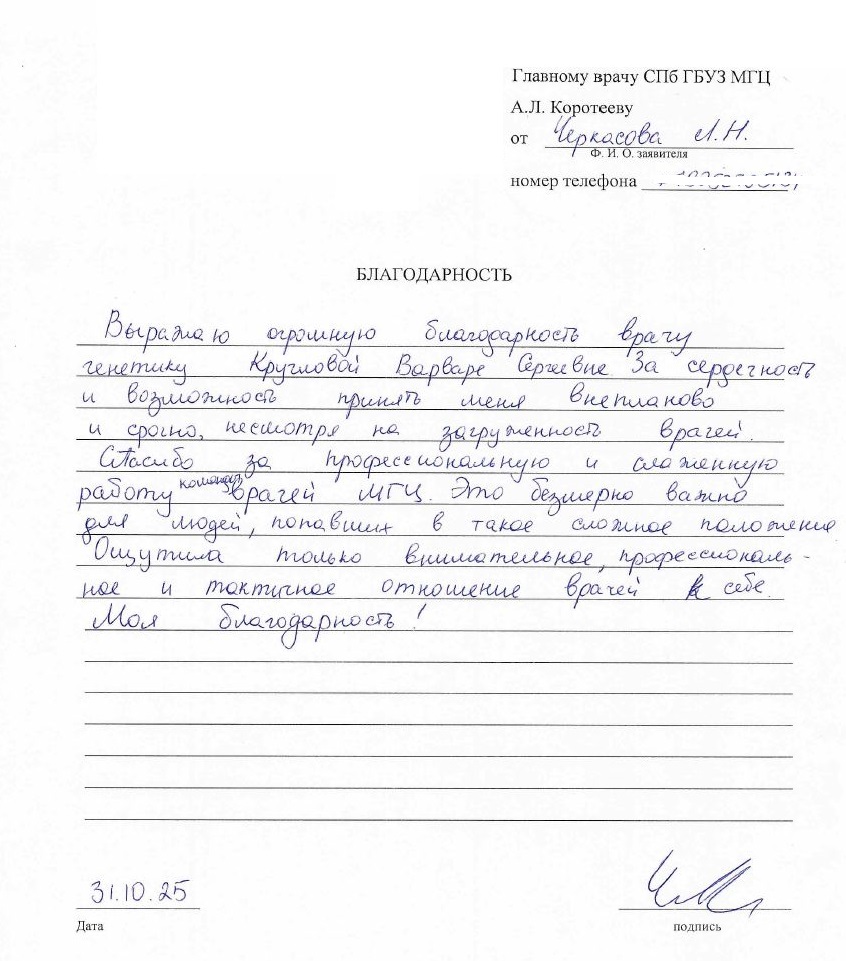 Главному врачу СПб ГБУЗ МГЦ
А.Л. Коротееву
от Черкасова Л.Н.
Ф. И. О. заявителя
номер телефона
БЛАГОДАРНОСТЬ
Выражаю огромную благодарность врачу
генетику Кругловой Варваре Сергеевне За сердечность
и возможность принять меня внепланово
и срочно, несмотря на загруженность врачей.
Спасибо за профессиональную и слаженную
работу команды врачей МГЦ. Это безмерно важно
для людей, попавших в такое сложное положение
Ощутила только внимательное, профессиональ-
ное и тактичное отношение врачей к себе.
Моя благодарность!
31.10.25
Дата
подпись